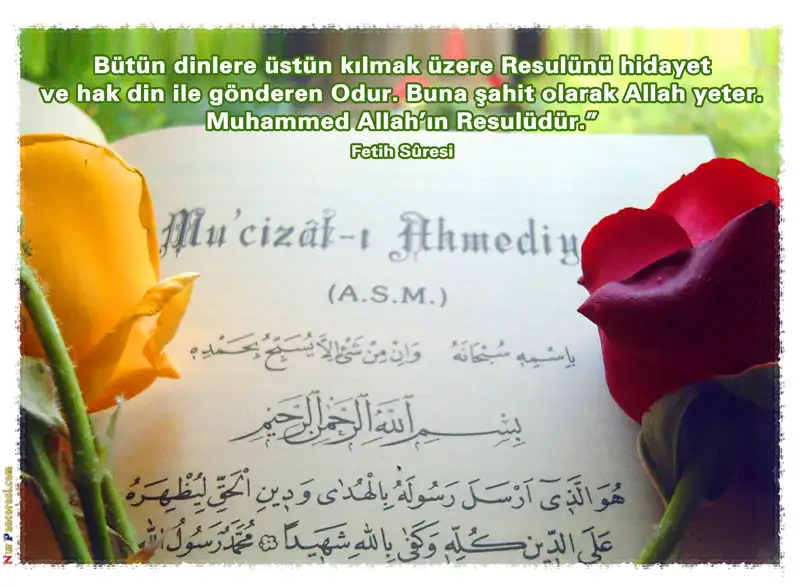 Bütün dinlere üstün kılmak üzere Resulünü hidayet
ve hak din ile gönderen Odur. Buna şahit olarak Allah yeter.
Muhammed Allah’ın Resulüdür.”
Fetih Sûresi
Mu’cizât-ı Ahmediy
(A.S.M.)
بِاسْمِهِ سُبْحَانَهُ وَاِنْ مِنْ شَىْءٍ اِلَّا يُسَبِّحُ بِحَمْدِهِ
بِسْمِ اللّٰهِ الرَّحْمٰنِ الرَّحِيمِ
هُوَ الَّذِىٓ اَرْسَلَ رَسُولَهُ بِالْهُدٰى وَدِينِ الْحَقِّ لِيُظْهِرَهُ
عَلَى الدِّينِ كُلِّهِ وَكَفٰى بِاللّٰهِ شَهِيدًا ۞ مُحَمَّدٌ رَسُولُ اللّٰهِ
Nur Penceresi.com